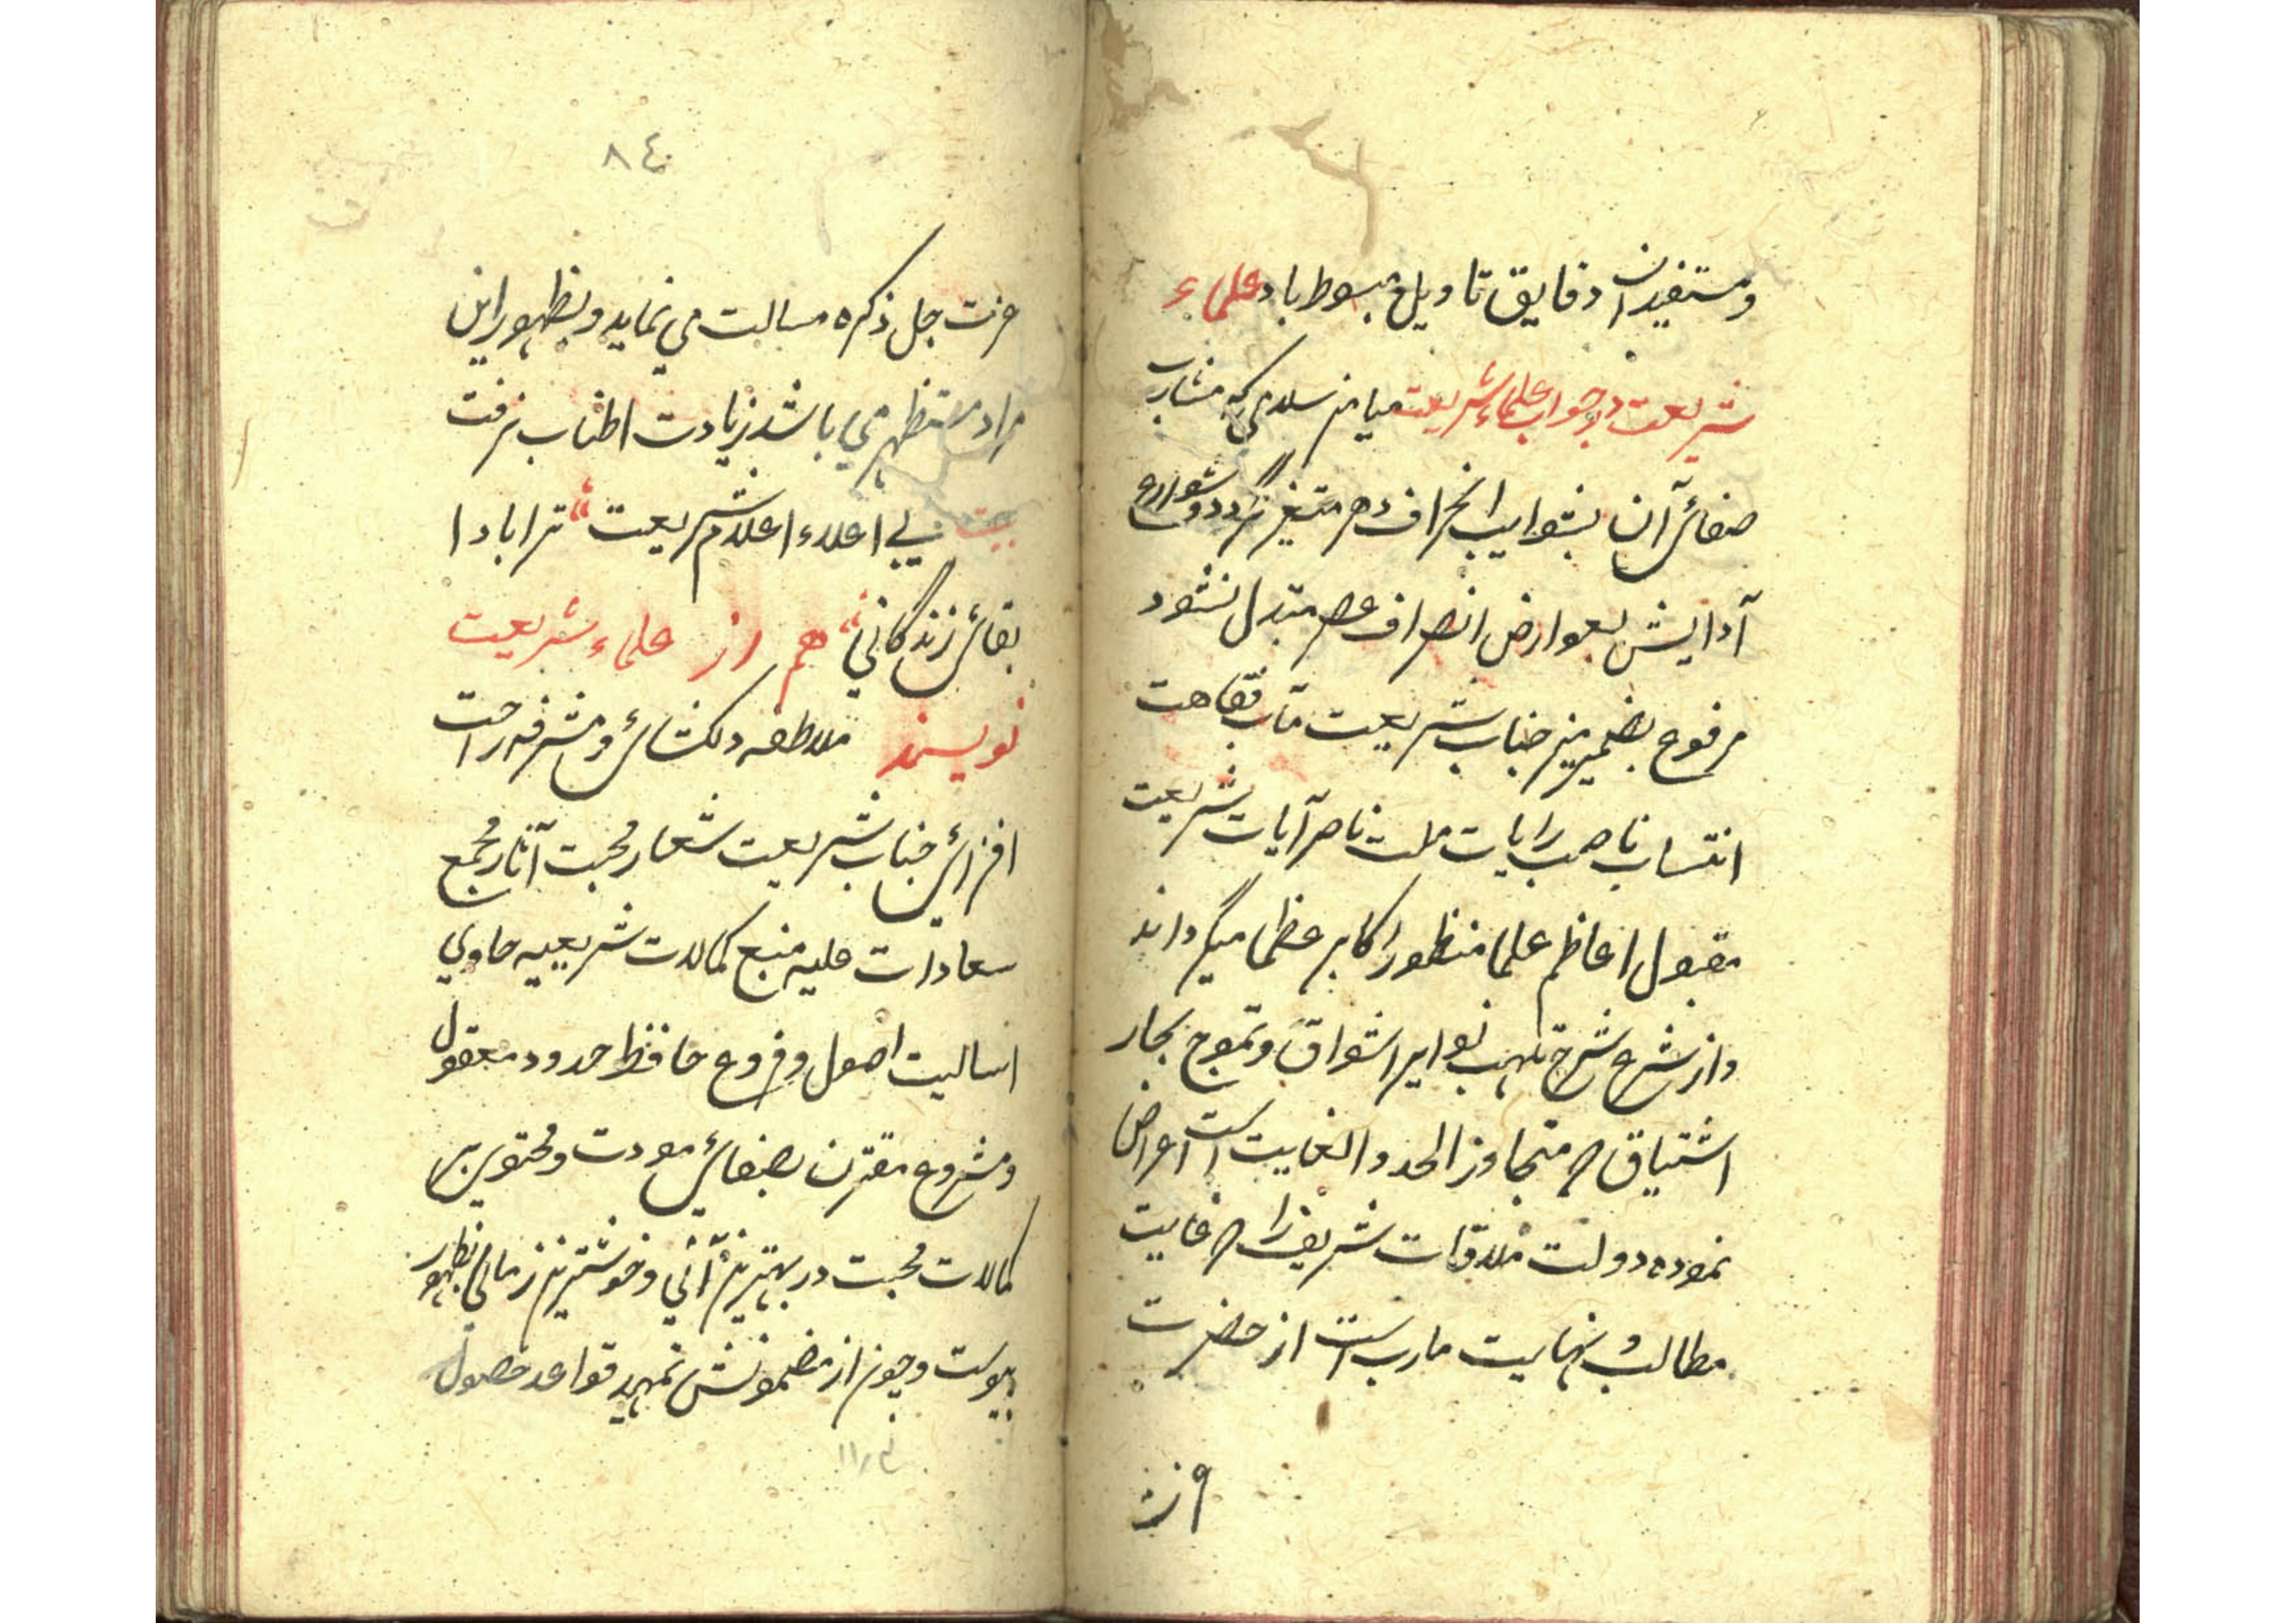 ومستفیدان دقایق تاویل مبسوط باد علماء
شریعت در جواب علماء شریعت میامن سلامی که مشارب
صفائی آن بشوایب انحراف دهر متغیر نگردد و شوارع
آدایش بعوارض انصراف عصر متبدل نشود
مرفوع بضمیر منیر جناب شریعت مآب فقاهت
انتساب ناصب رایات ملت ناصر آیات شریعت
مقبول اعاظم علما منظور اکابر عظما میگرداند
واز شرع شرح تلهب نوایر اشواق و تموج بحار
اشتیاق که متجاوز الحد والغایت است اعراض
نموده دولت ملاقات شریف را که غایت
مطالب و نهایت مارب است از حضرت
٨٤
عزت جل ذکره مسالت می نماید و بظهور این
مراد مستظهر می باشد زیادت اطناب نرفت
بیت پی اعلاء اعلام شریعت ترا بادا
بقائی زندگانی هم از علماء شریعت
نویسند ملاطفه دلکشائی و مشرفه راحت
افزائی جناب شریعت شعار محبت آثار مجمع
سعادات علیه منبع کمالات شریعیه حاوی
اسالیت اصول و فروع حافظ حدود معقول
ومشروع مقترن بصفائی مودت و محتوی بر
کمالات محبت در بهترین آنی و خوشترین زمانی بظهور
پیوست وچون از مضمونش تمهید قواعد حصول